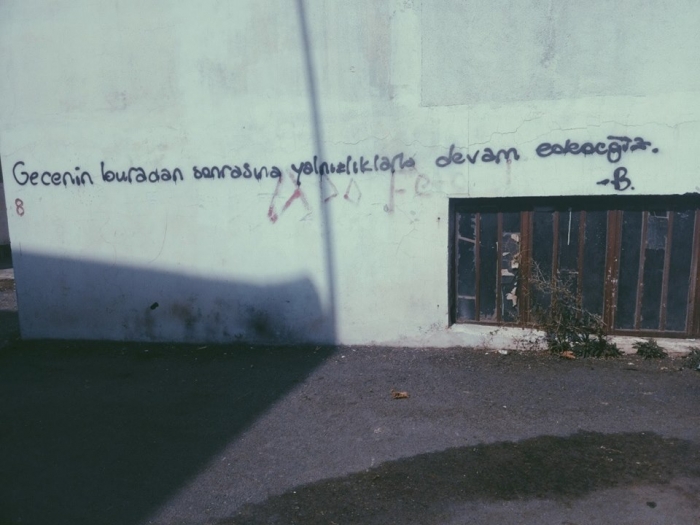 Gecenin buradan sonrasına yalnızlıklarla devam edeceğiz.
-B.
8